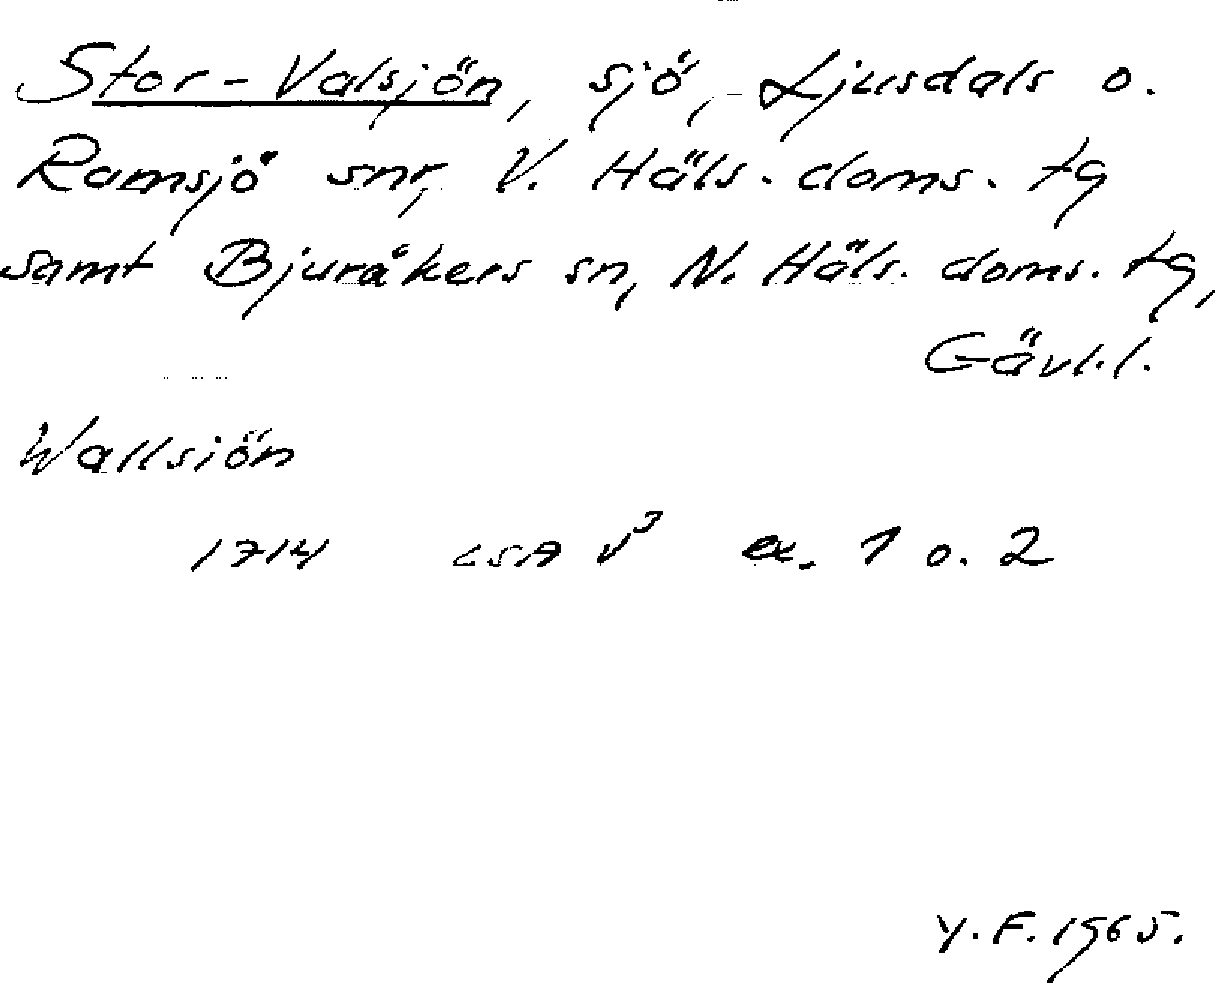 Stor-Valsjön, sjö, Ljusdals o.
Ramsjö snr, V. Häls. doms. tg
samt Bjuråkers sn, N. Häls. doms. tg,
Gävl.l.
Wallsiön
1714 LSA V³ ex. 1 o. 2
Y.F. 1965.